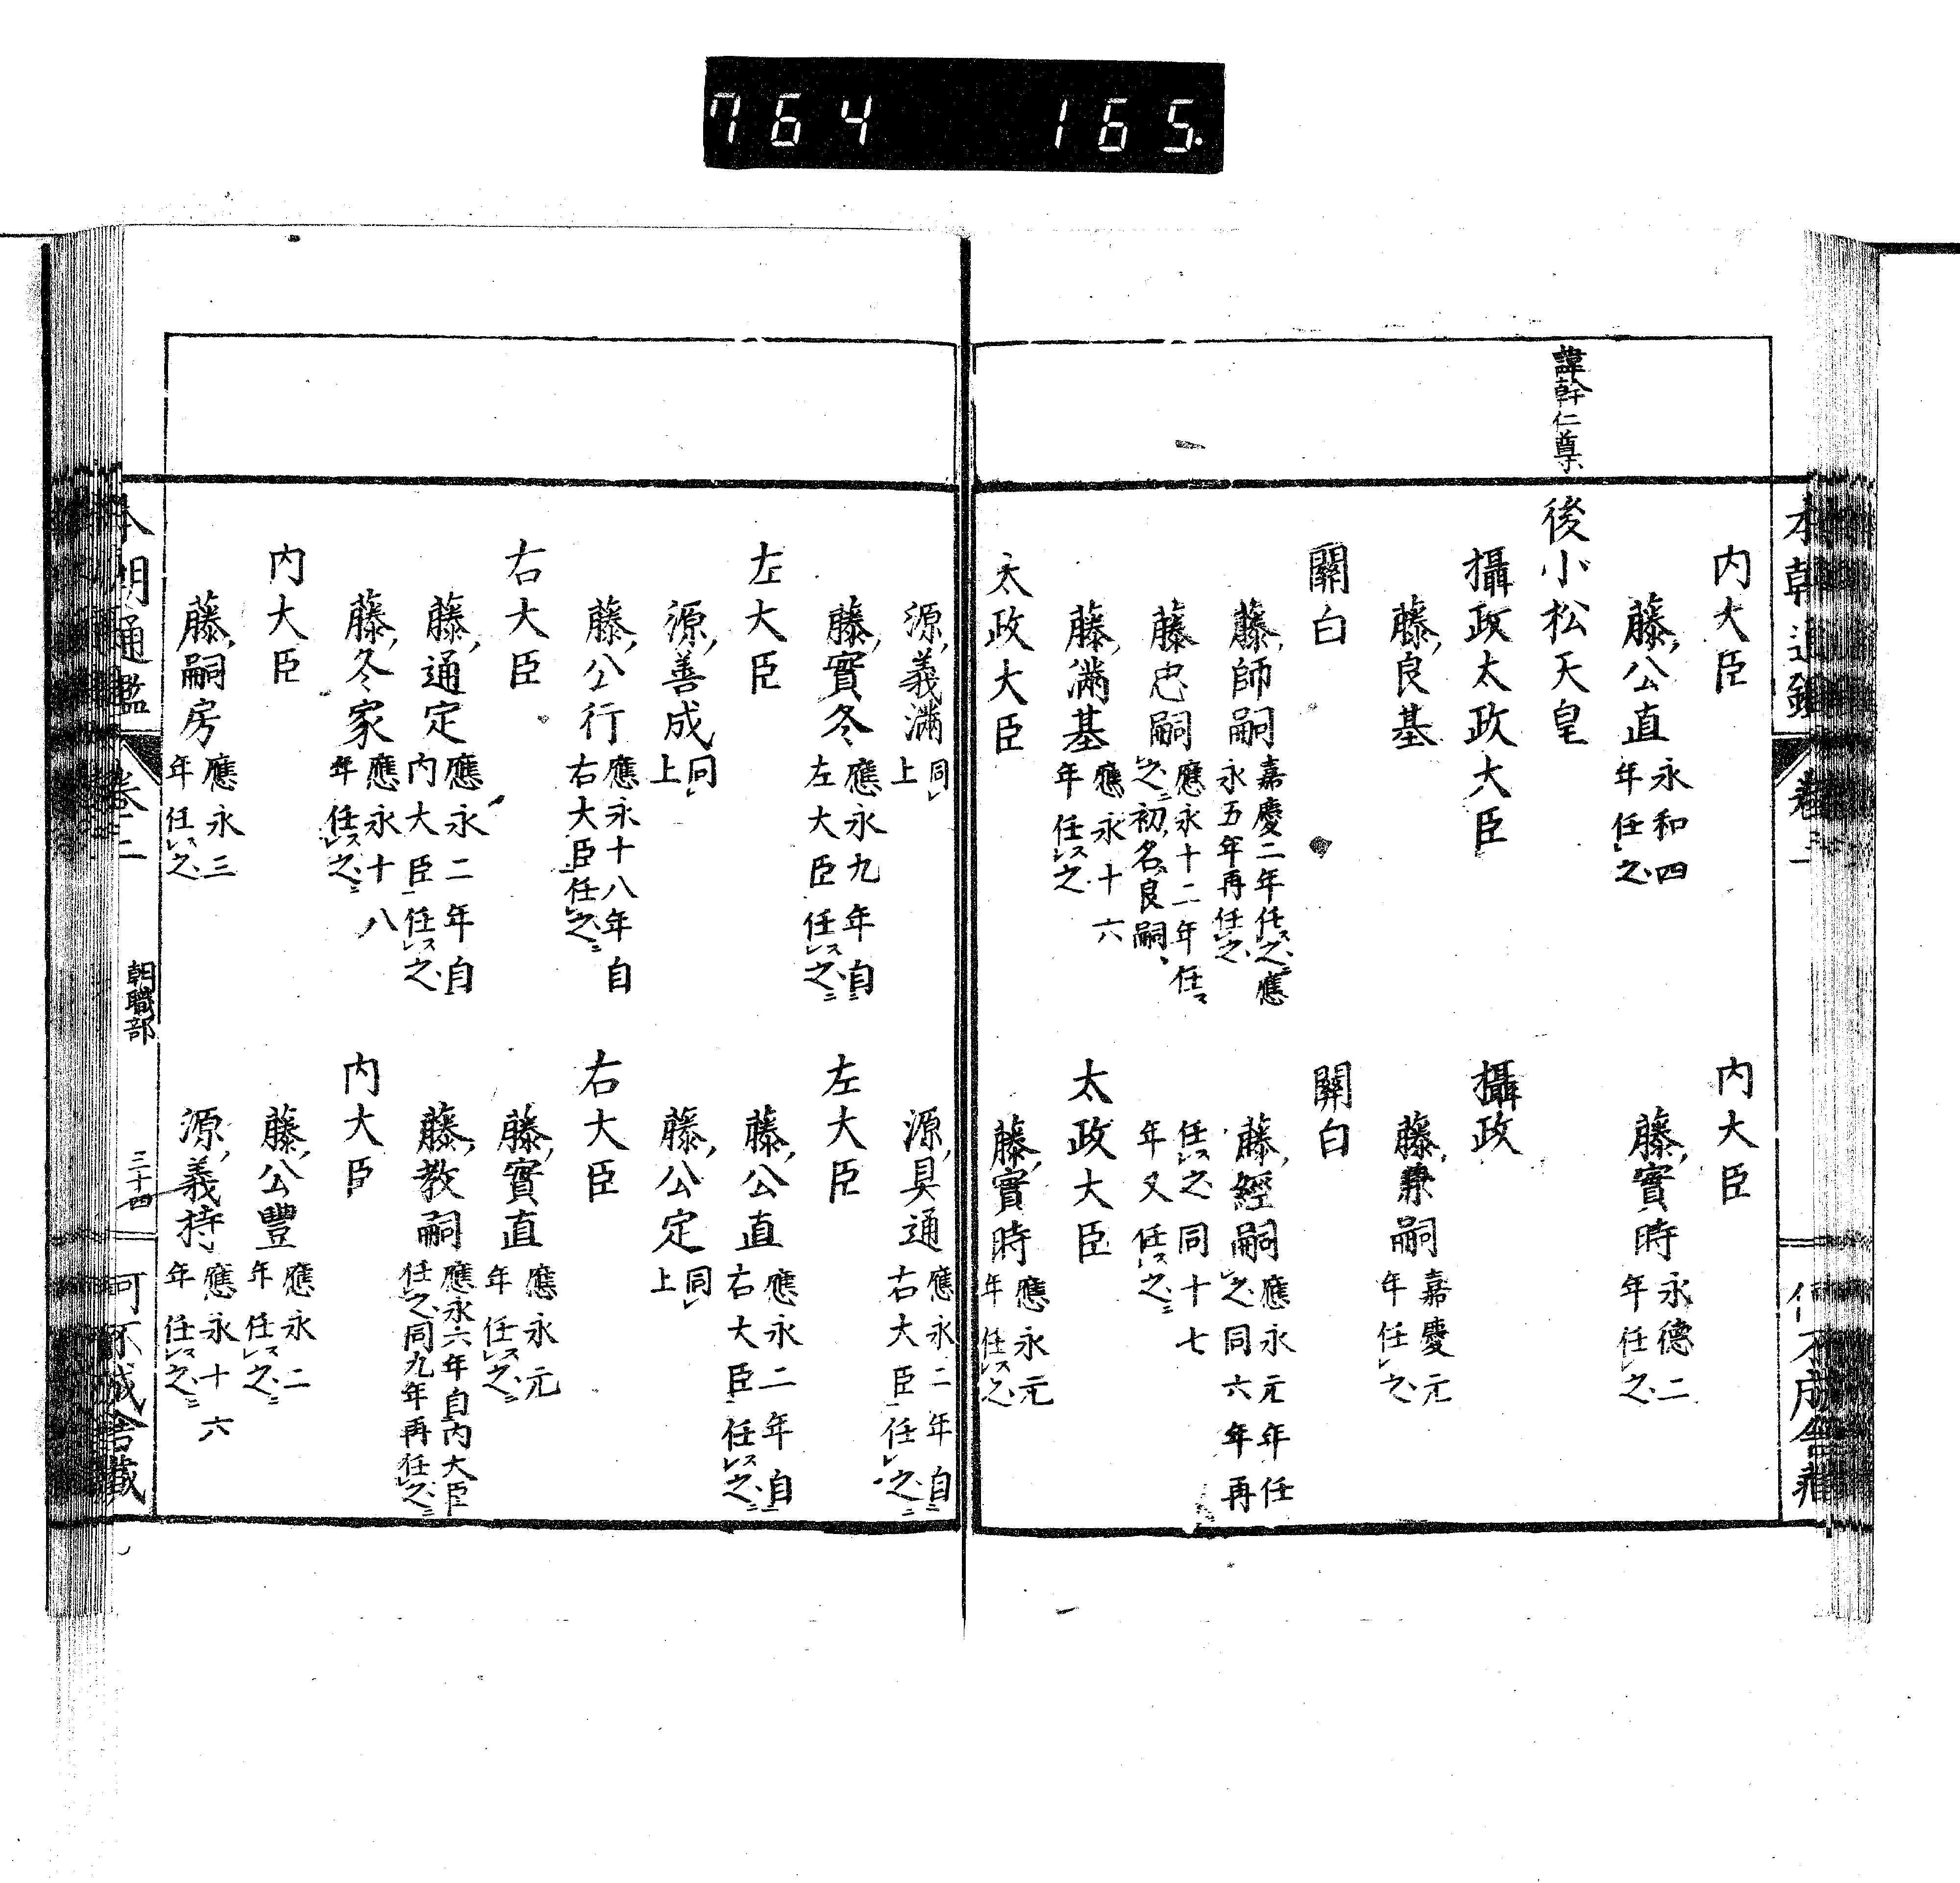 764 165.
本朝通鑑 卷二
内大臣
藤公直 永和四年任之
内大臣
藤實時 永德二年任之
諱幹仁尊
後小松天皇
攝政太政大臣
藤良基
攝政
藤兼嗣 嘉慶元年任之
關白
藤師嗣 嘉慶二年任之應永五年再任之
藤忠嗣 應永十二年任之初名良嗣
藤滿基 應永十六年任之
關白
藤經嗣 應永元年任之同六年再任之同十七年又任之
太政大臣
太政大臣
藤實時 應永元年任之
源義滿 同上
藤實冬 應永九年自左大臣任之
源具通 應永二年自右大臣任之
左大臣
源善成 同上
藤公行 應永十八年自右大臣任之
左大臣
藤公直 應永二年自右大臣任之
藤公定 同上
右大臣
藤通定 應永二年自内大臣任之
藤冬家 應永十八年任之
右大臣
藤實直 應永元年任之
藤教嗣 應永六年自内大臣任之同九年再任之
内大臣
藤嗣房 應永三年任之
内大臣
藤公豐 應永二年任之
源義持 應永十六年任之
本朝通鑑 卷二 朝職部 三十四